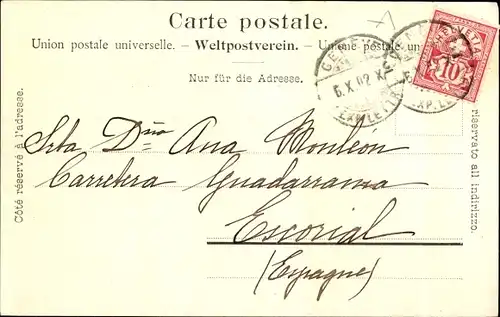 Carte postale.
Union postale universelle. – Weltpostverein. – Unione postale un
Nur für die Adresse.
HELVETIA
10
GENÈVE
6.X.02
EXP.LETTR.
EXP.LE
Côté réservé à l'adresse.
riservato all indirizzo.
Srta Dña Ana Monleón
Carretera Guadarrama
Escorial
(Espagne)